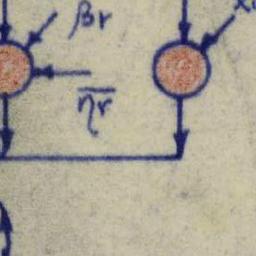 βr
ηr